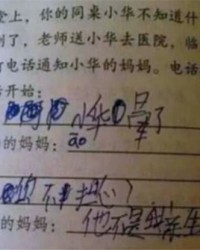 堂上，你的同桌小华不知道什
倒了，老师送小华去医院，临
打电话通知小华的妈妈。电话
话开始：
小华晕了
的妈妈：āo
你不担心？
的妈妈：他不是我亲生